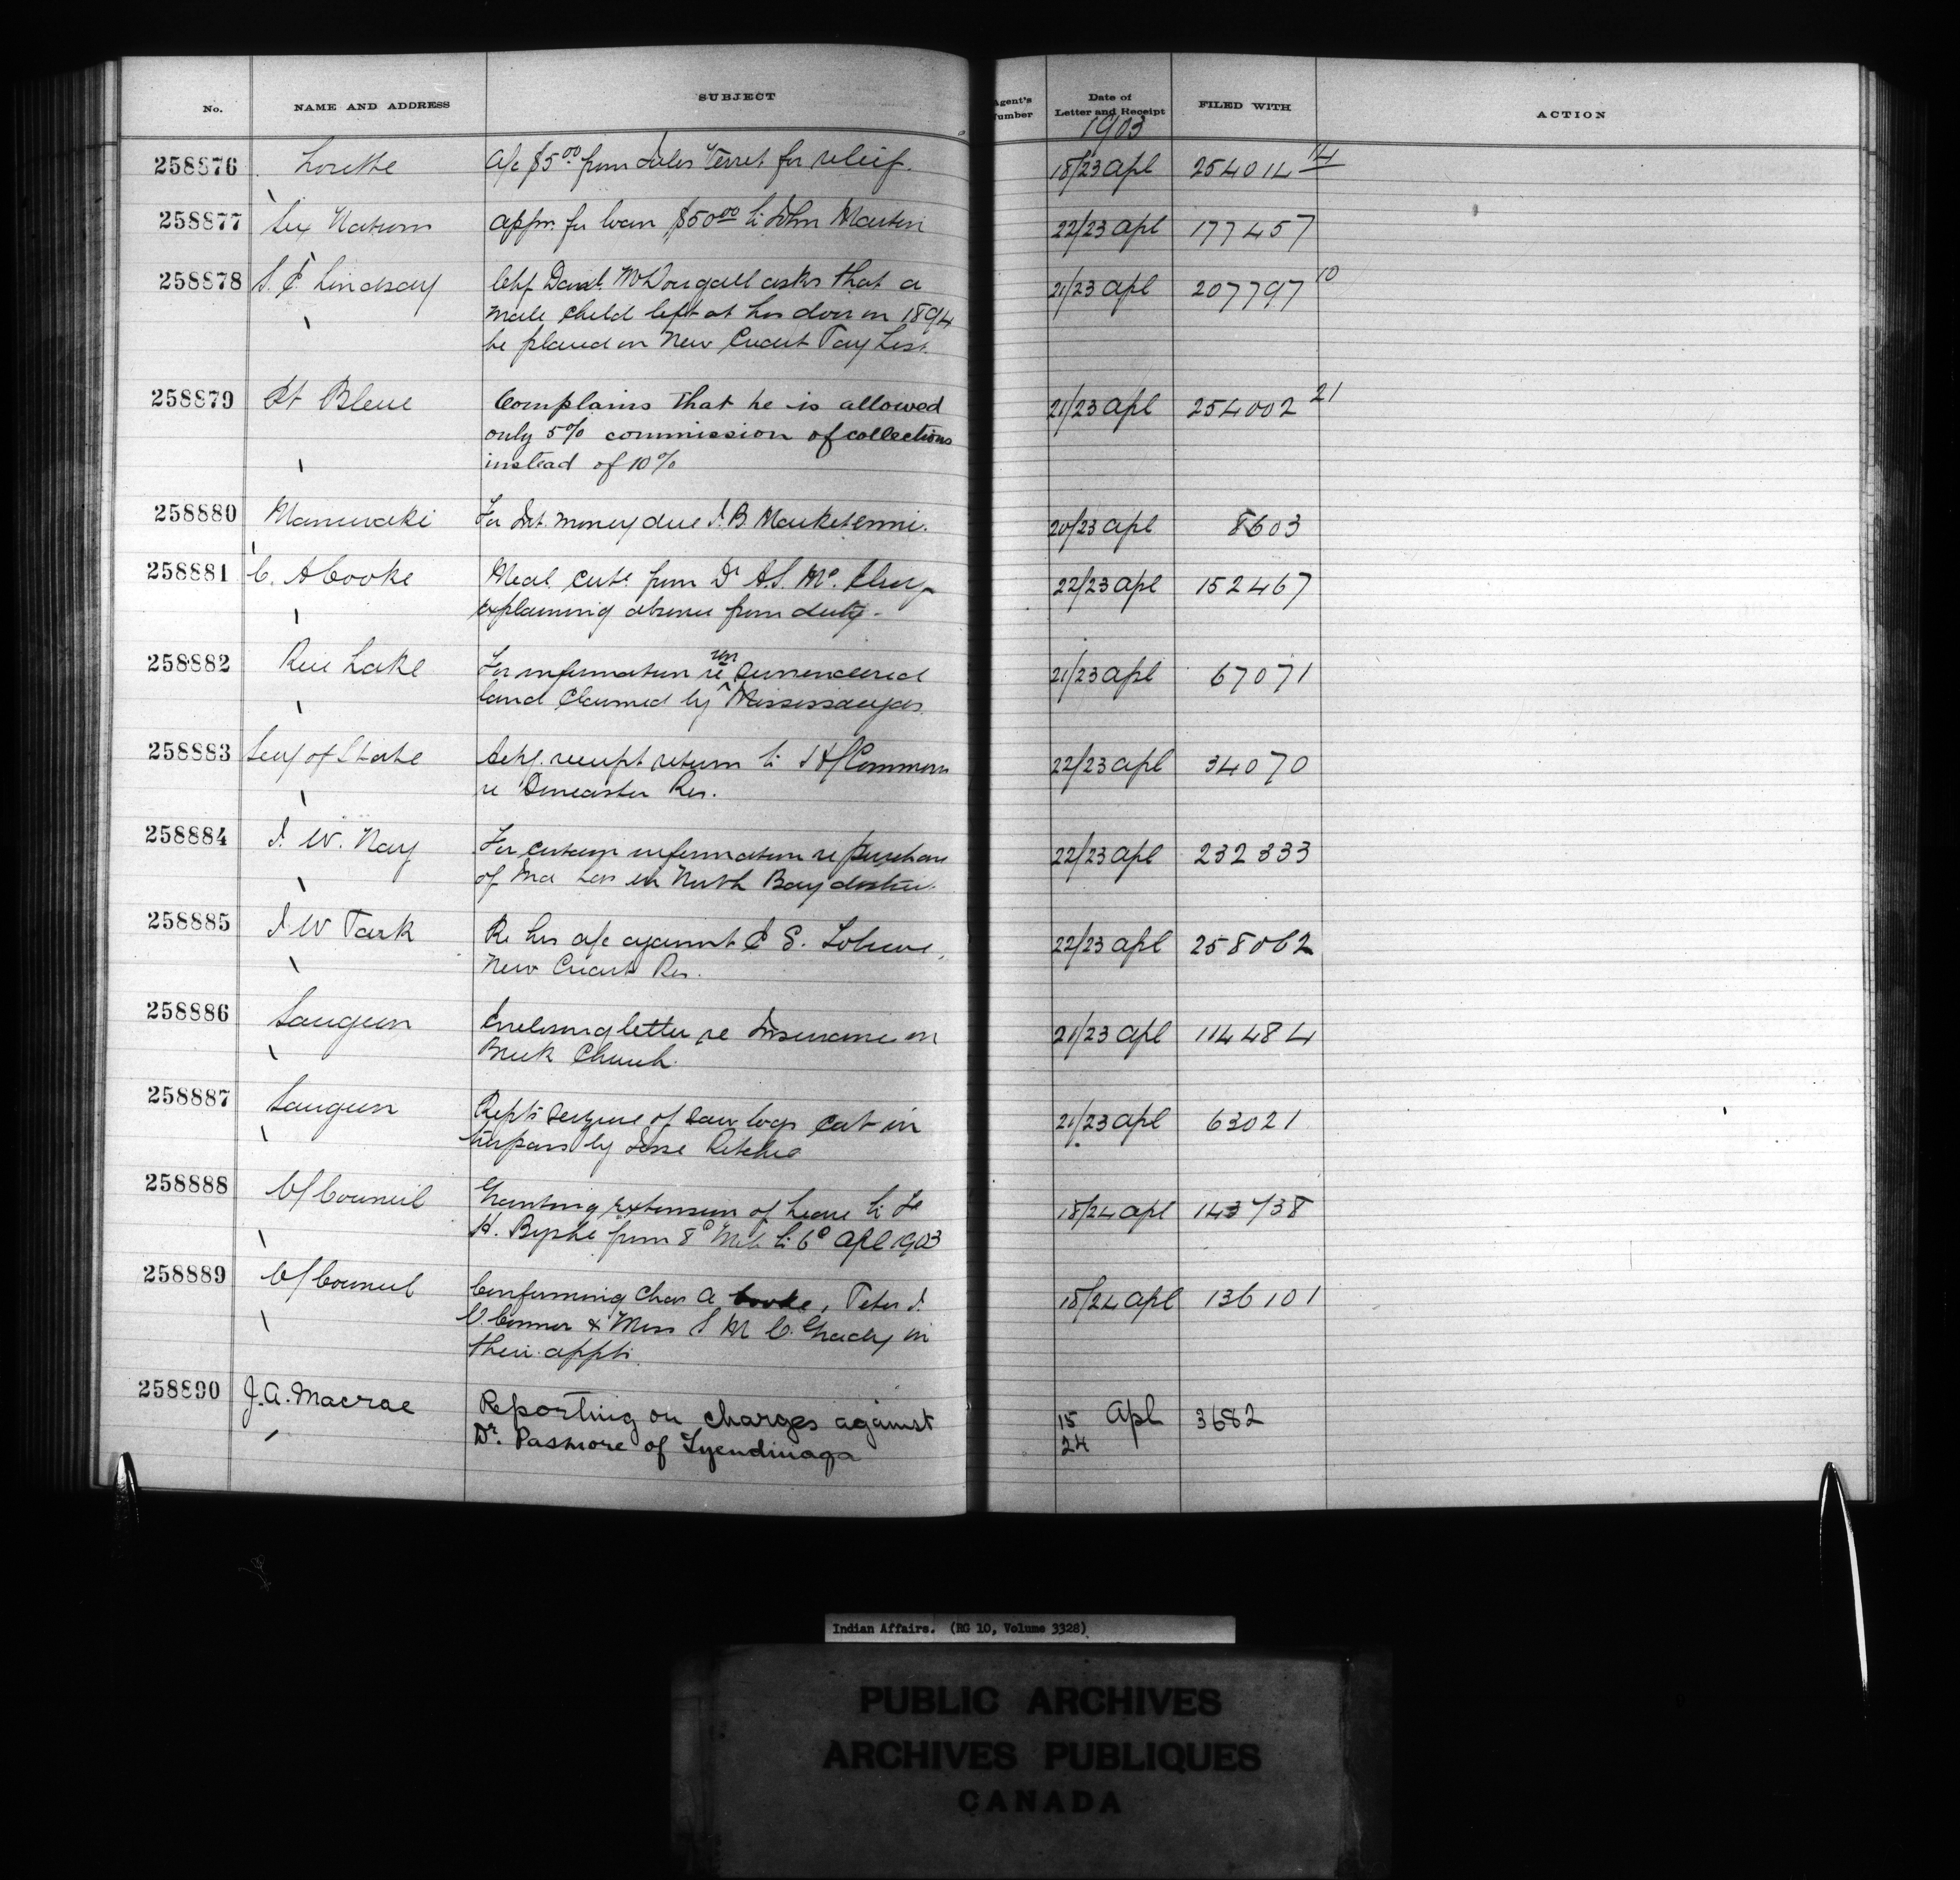 No. NAME AND ADDRESS SUBJECT Agent's Number Date of Letter and Receipt FILED WITH ACTION
1903
258876 Lorette A/c $5.00 from Jules Terret for relief. 18/23 Apl 254014 14
258877 Six Nations Appn. for loan $50.00 to John Martin 22/23 Apl 177457
258878 Lindsay Chf McDougall asks that a 21/23 Apl 207797 10
male child left at his door in 1894
be placed on New Credit Pay List.
258879 Bleue Complains that he is allowed 21/23 Apl 254002 21
only 5% commission of collections
instead of 10%
258880 Maniwaki For Int. money due J.B. 20/23 Apl 8603
258881 C. A Cooke Med. Cert. from Dr A.S. 22/23 Apl 152467
explaining absence from duty.
258882 Rice Lake For information re un surrendered 21/23 Apl 67071
land claimed by Mississaugas
258883 Secy of State Ack. receipt return to H/Commons 22/23 Apl 34070
re Res.
258884 J. W. Nay For certain information re purchase 22/23 Apl 232333
of Ind in North Bay
258885 J. W Park Re his a/c against 22/23 Apl 258062
New Credit Res.
258886 Saugeen Enclosing letter re Insurance on 21/23 Apl 114484
Brick Church.
258887 Saugeen Repts seizure of saw logs cut in 21/23 Apl 63021
trespass by Jesse Ritchie
258888 C/Council Granting extension of leave to 18/24 Apl 143738
H. from 8º to 6º Apl 1903
258889 C/Council Confirming Chas A Cooke, Peter J. 18/24 Apl 136101
O.Connor & Miss Grady in
their appts.
258890 J.A. Macrae Reporting on charges against 15 Apl 3682
Dr. Pasmore of Tyendinaga 24
Indian Affairs. (RG 10, Volume 3328)
PUBLIC ARCHIVES
ARCHIVES PUBLIQUES
CANADA